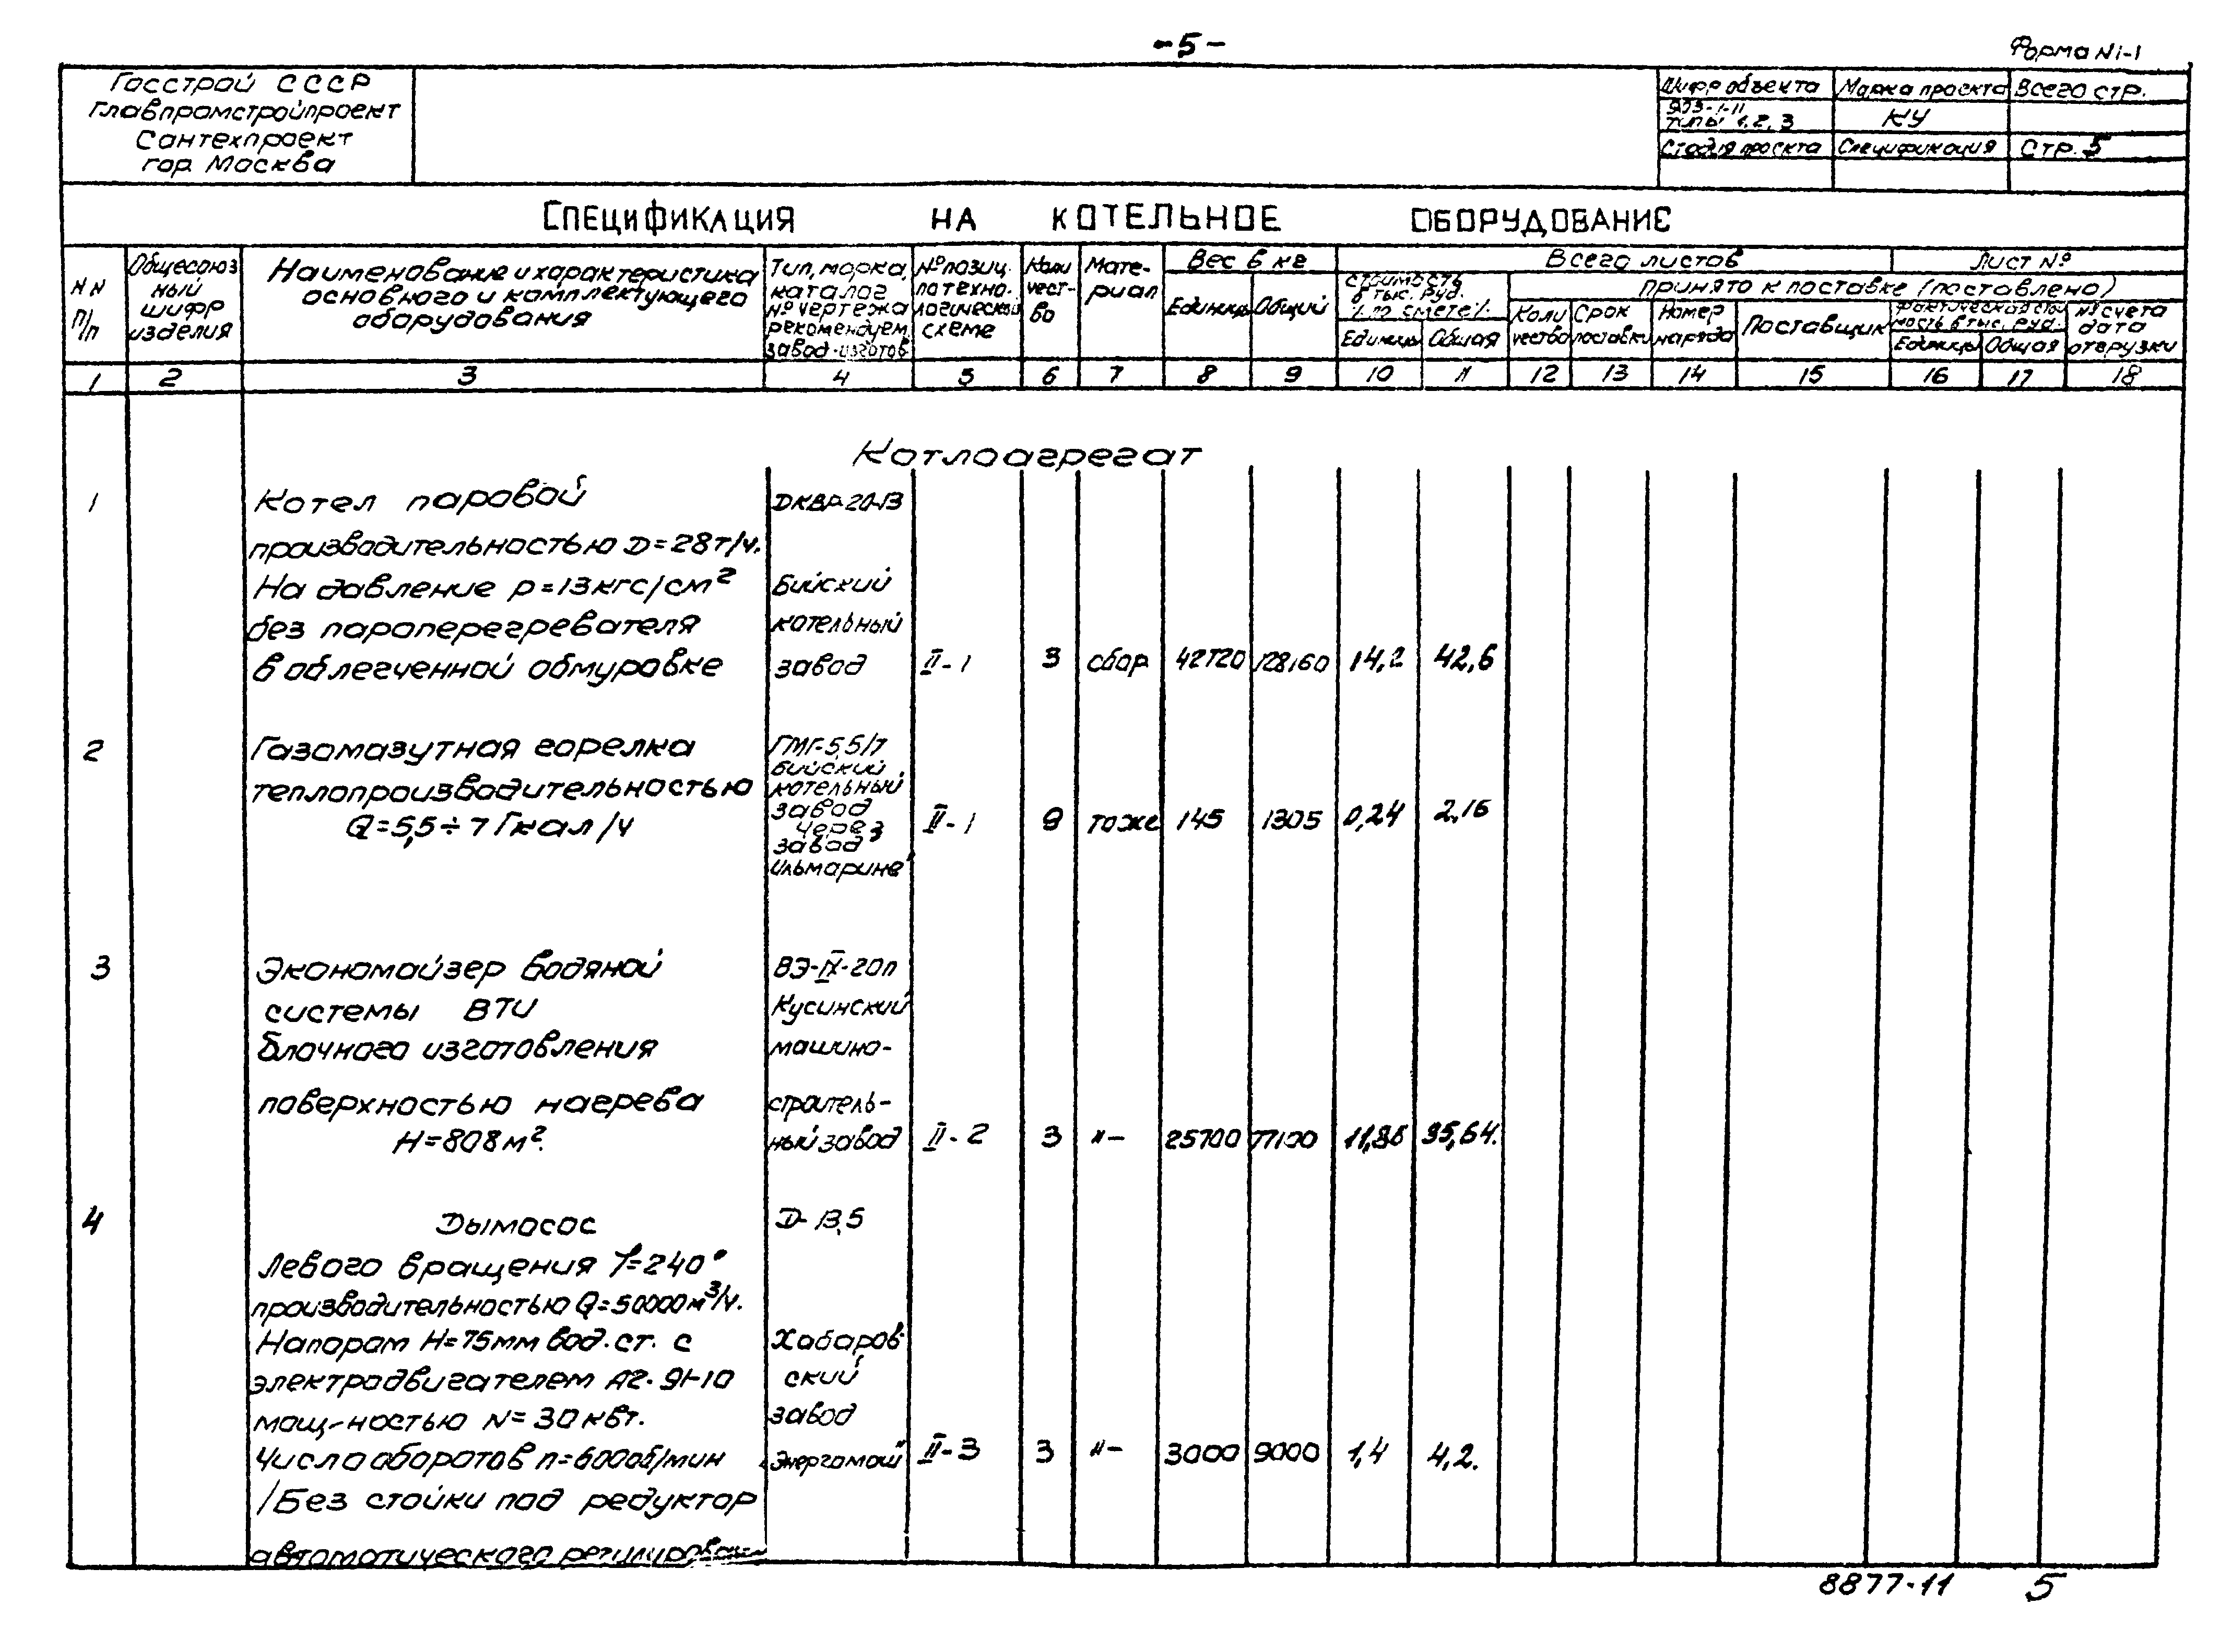 -5-
Форма N1-1
Госстрой СССР
Главпромстройпроект
Сантехпроект
гор. Москва
Шифр объекта
Марка проекта
Всего стр.
903-1-11
типы 1, 2, 3
КУ
Стадия проекта
Спецификация
Стр. 5
СПЕЦИФИКАЦИЯ НА КОТЕЛЬНОЕ ОБОРУДОВАНИЕ
NN
п/п
Общесоюз
ный
шифр
изделия
Наименование и характеристика
основного и комплектующего
оборудования
Тип, марка,
каталог
№ чертежа
рекомендуем.
завод-изготов.
№ позиц.
по техно-
логической
схеме
Коли
чест-
во
Мате-
риал
Вес в кг
Единицы
Общий
Всего листов
Лист №
Стоимость
в тыс. руб.
/по смете/
Единицы
Общая
Принято к поставке (поставлено)
Коли
чество
Срок
поставки
Номер
наряда
Поставщик
Фактическая стои
мость в тыс. руб.
Единицы
Общая
№ счета
дата
отгрузки
1 2 3 4 5 6 7 8 9 10 11 12 13 14 15 16 17 18
Котлоагрегат
1 Котел паровой ДКВР-20-13
производительностью D=28т/ч.
На давление р=13кгс/см² Бийский
без пароперегревателя котельный
в облегченной обмуровке завод II-1 3 сбор 42720 128160 14,2 42,6
2 Газомазутная горелка ГМГ-5,5/7
Бийский
теплопроизводительностью котельный
завод
Q=5,5÷7 Гкал/ч через II-1 9 тоже 145 1305 0,24 2,16
завод
Ильмарине
3 Экономайзер водяной ВЭ-IX-20п
системы ВТИ Кусинский
блочного изготовления машино-
поверхностью нагрева строитель-
H=808м². ный завод II-2 3 "- 25700 77100 11,88 35,64.
4 Дымосос Д-13,5
Левого вращения =240°
производительностью Q=50000м³/ч.
Напором H=75мм вод. ст. с Хабаров-
электродвигателем А2-91-10 ский
мощ-ностью N=30 квт. завод
Число оборотов n=600об/мин Энергомаш II-3 3 "- 3000 9000 1,4 4,2.
/Без стойки под редуктор
автоматического регулирован
8877-11 5